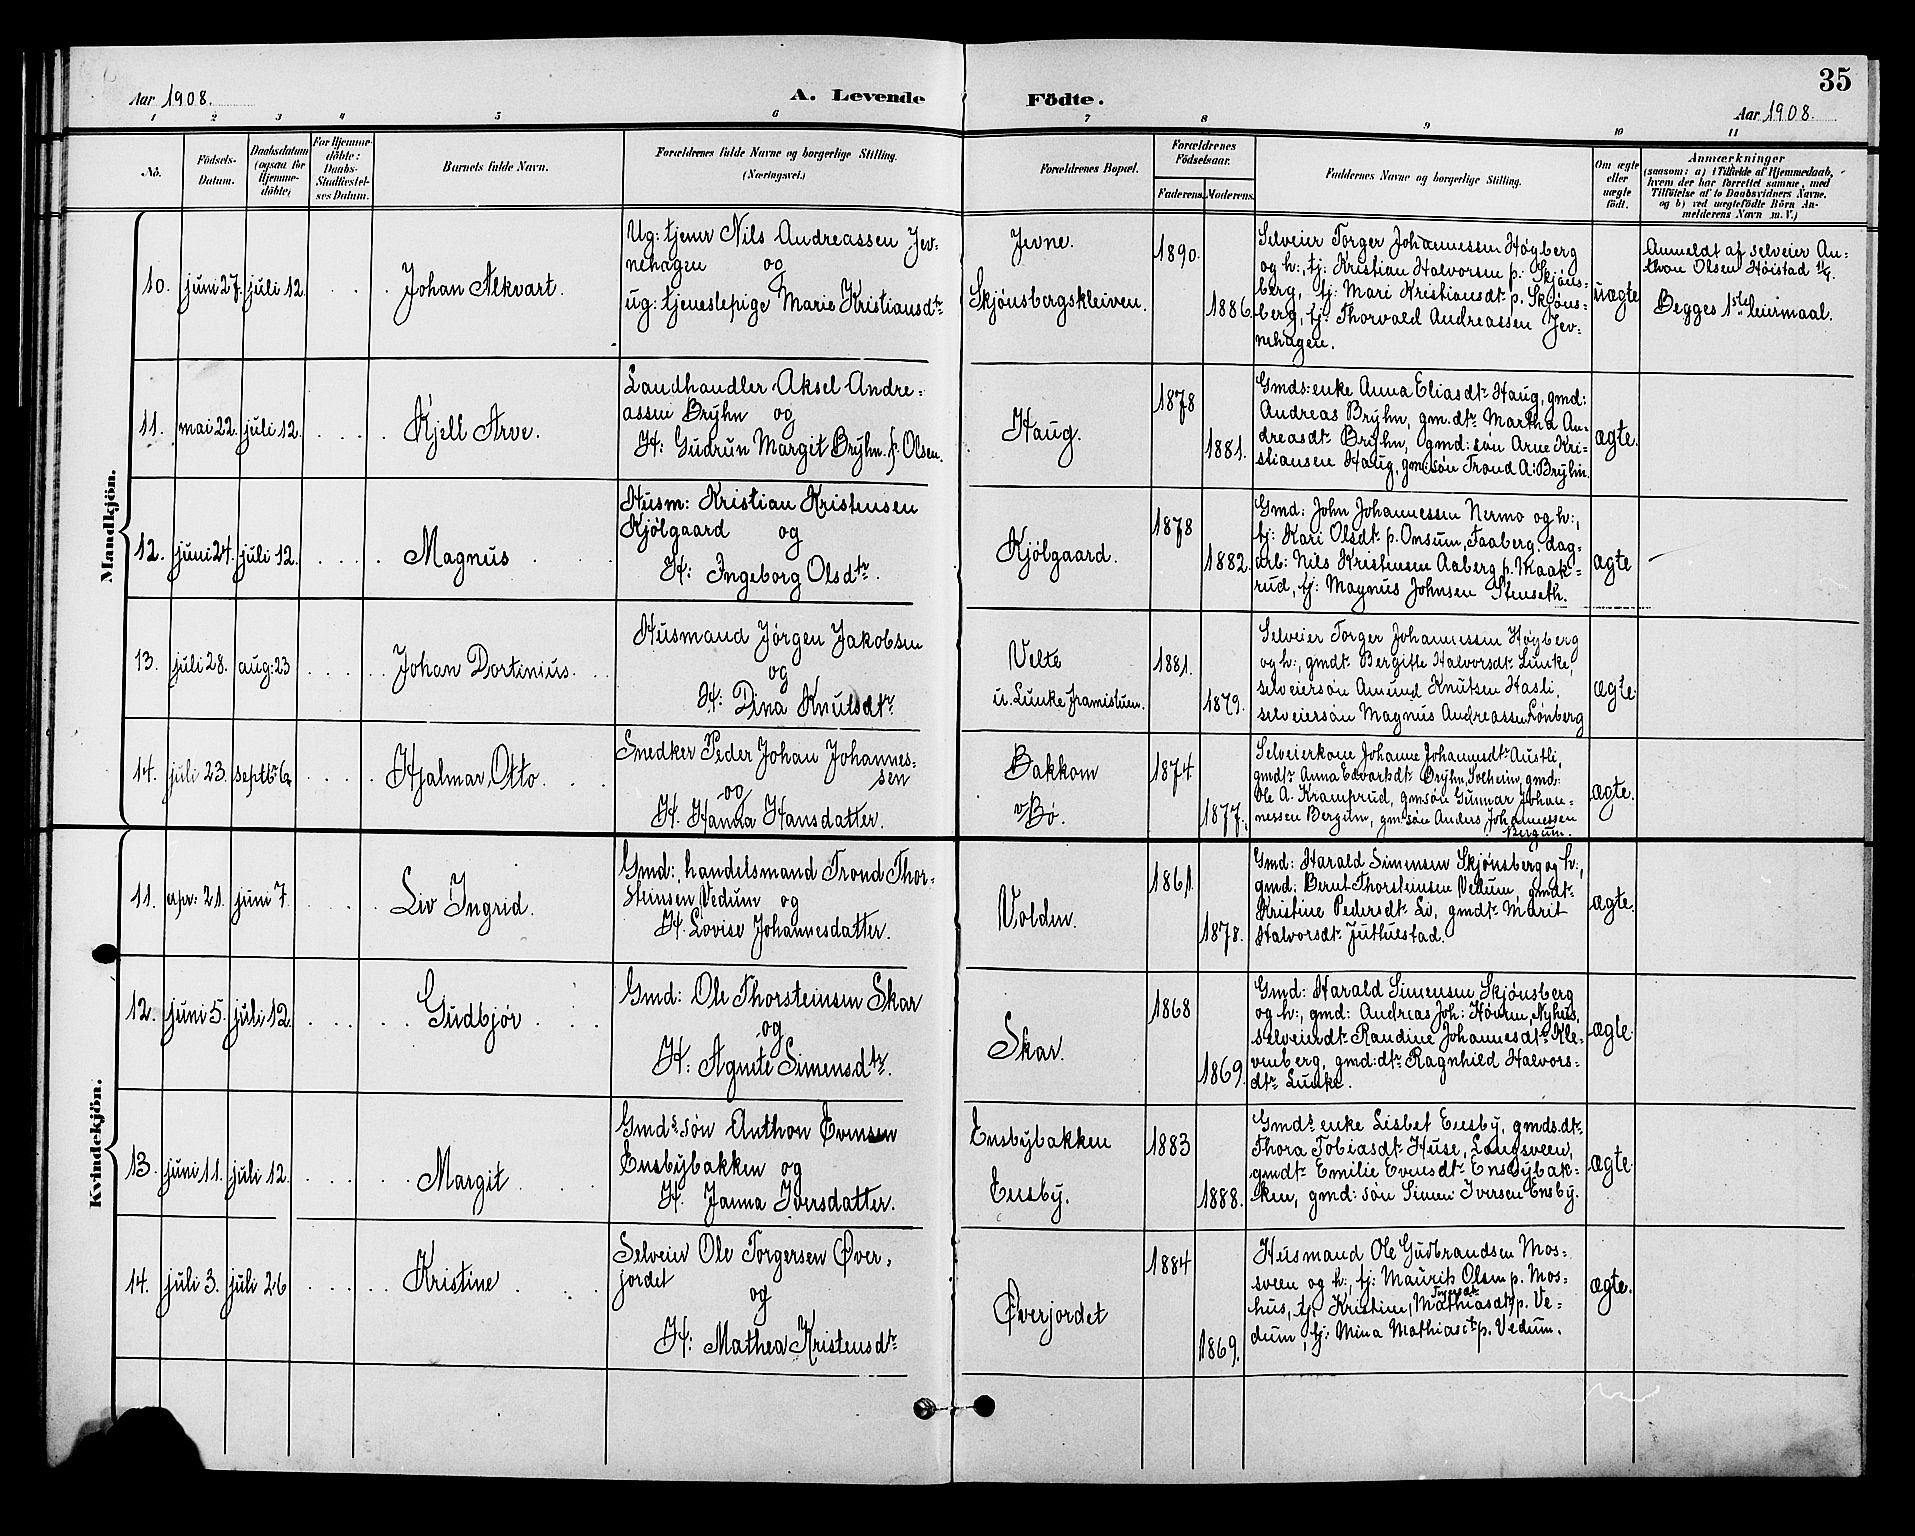 35
Aar 1908.
A. Levende Födte.
Aar 1908.
1 2 3 4 5 6 7 8 9 10 11
No.
Födsels-
Datum.
Daabsdatum
(ogsaa for
Hjemme-
döbte)
For Hjemme-
döbte:
Daabs-
Stadfæstel-
ses Datum.
Barnets fulde Navn.
Forældrenes fulde Navne og borgerlige Stilling.
(Næringsvei.)
Forældrenes Bopæl.
Forældrenes
Födselsaar.
Faderens. Moderens.
Faddernes Navne og borgerlige Stilling.
Om ægte
eller
uægte
födt.
Anmærkninger
(saasom: a) i Tilfælde af Hjemmedaab,
hvem der har forrettet samme, med
Tilföielse af to Daabsvidners Navne.
og b) ved uægtefödte Börn An-
melderens Navn m. V.)
Mandkjön.
10. juni 27. juli 12.
Johan Alkvart.
Ug: tjener Nils Andreassen Jev-
nehagen og
ug: tjenestepige Marie Kristiansdtr
Jevne.
Skjønsbergskleiven.
1890.
1886.
Selveier Torger Johannessen Høyberg
og h:, tj: Kristian Halvorsen p: Skjøns-
berg, tj: Mari Kristiansdtr p. Skjøns-
berg, tj: Thorvald Andreassen Jev-
nehagen.
uægte
Anmeldt af selveier An-
thon Olsen Høistad
Begges 1ste leiermaal.
11. mai 22. juli 12.
Kjell Arve.
Landhandler Aksel Andre-
assen Bryhn og
H: Gudrun Margit Bryhn f. Olsen.
Haug.
1878
1881.
Gmds: enke Anna Eliasdtr Haug, gmd:
Andreas Bryhn, gm.dtr Martha An-
dreasdtr Bryhn, gmd: søn Arne Kri-
stiansen Haug, gm:søn Trond A: Bryhn.
ægte.
12. juni 24. juli 12.
Magnus
Husm: Kristian Kristensen
Kjølgaard og
H: Ingeborg Olsdtr.
Kjølgaard.
1878
1882.
Gmd: John Johannessen Nermo og h:,
tj: Kari Olsdtr p. Onsum, Faaberg, dag-
arb: Nils Kristensen Aaberg p. Maak-
rud, tj: Magnus Johnsen Stenseth.
ægte
13. juli 28. aug: 23
Johan Dortinius.
Husmand Jørgen Jakobsen
og
H: Dina Knutsdtr
Velte
u. Lunke framistuen.
1881.
1879.
Selveier Torger Johannessen Høyberg
og h:, gmdtr Bergitte Halvorsdtr Lunke,
selveiersøn Amund Knutsen Hasli,
selveiersøn Magnus Andreassen Lønberg
ægte.
14. juli 23. septbr 6.
Hjalmar Otto.
Snedker Peder Johan Johannes-
sen
og
H. Hanna Hansdatter.
Bakkom
v/Bø.
1874.
1877.
Selveierkone Johanne Johannesdtr Austli,
gmdtr Anna Edvardsdtr Bryhn, Solheim, gmd:
Ole A. Kramprud, gmsøn Gunnar Johan-
nessen Bergum, gm:søn Anders Johannessen
Bergum.
ægte.
Kvindekjön.
11. apr: 21. juni 7.
Liv Ingrid.
Gmd:, handelsmand Trond Thor-
steinsen Vedum og
H. Lovise Johannesdatter.
Volden.
1861.
1878.
Gmd: Harald Simensen Skjønsberg og h:,
gmd: Bernt Thorsteinsen Vedum, gmdtr
Kristine Pedersdtr Liv, gmdtr Marit
Halvorsdtr Juthulstad.
ægte.
12. juni 5. juli 12.
Gudbjør.
Gmd: Ole Thorsteinsen Skar
og
H: Agnete Simensdtr.
Skar.
1868
1869.
Gmd: Harald Simensen Skjønsberg
og h:, gmd: Andreas Joh: Hovren, Nyhus,
selveierdtr Randine Johannesdtr Kle-
venberg, gmd:dtr Ragnhild Halvors-
dtr Lunke.
ægte
13. juni 11. juli 12.
Margit
Gmds søn Anthon Evensen
Ensbybakken og
H. Janna Iversdatter.
Ensbybakken
Ensby.
1883
1888.
Gmds enke Lisbet Ensby, gmds.dtr
Thora Tobiasdtr Huse, Langsveen,
gmdtr Emilie Evensdtr Ensbybak-
ken, gmd: søn Simen Iversen Ensby.
ægte
14. juli 3. juli 26
Kristine
Selveier Ole Torgersen Øver-
jordet
og
H: Mathea Kristensdtr
Øverjordet
1884
1869.
Husmand Ole Gudbrandsen Mos-
sveen og h:, tj: Maurits Olsen p. Mos-
hus, tj. Kristine Mathiasdtr p. Ve-
dum, tj: Mina Mathiasdtr p. Vedum.
ægte.